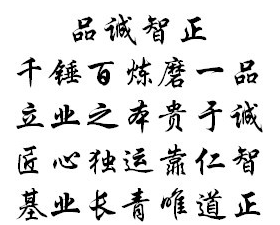 品诚智正
千锤百炼磨一品
立业之本贵于诚
匠心独运靠仁智
基业长青唯道正